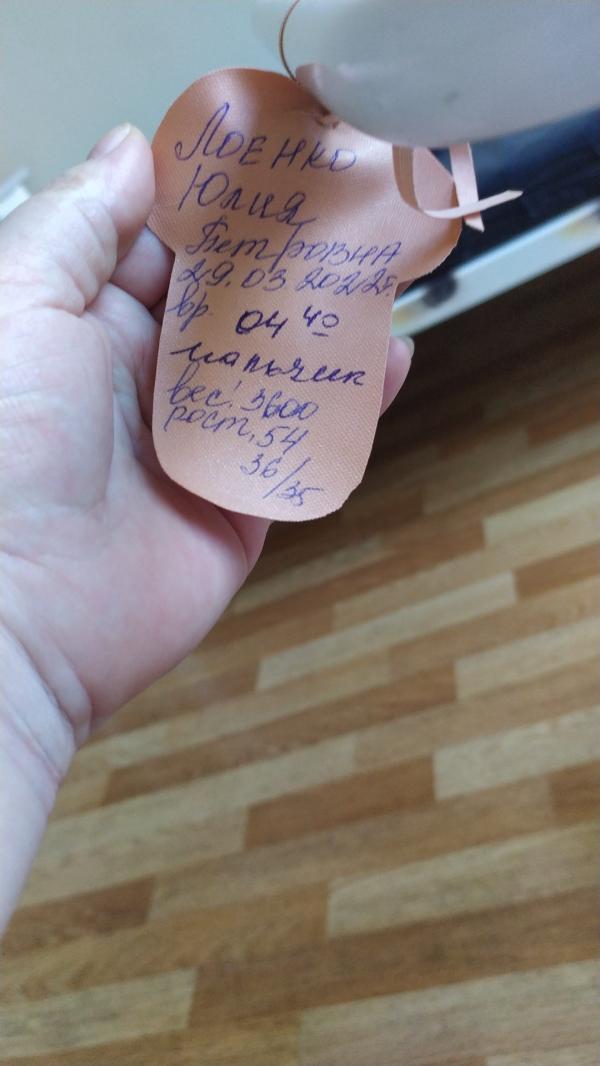 Лоенко
Юлия
Петровна
29.03 2022г.
вр. 04 40
мальчик
вес: 3600
рост, 54
36/35